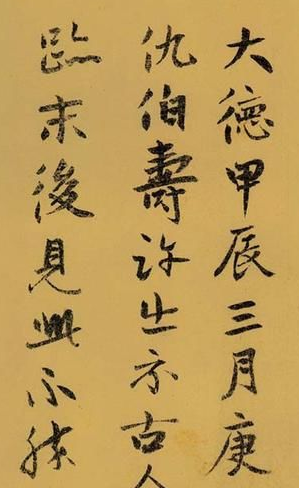 大德甲辰三月庚
仇伯壽許出示古人
末後見此不勝